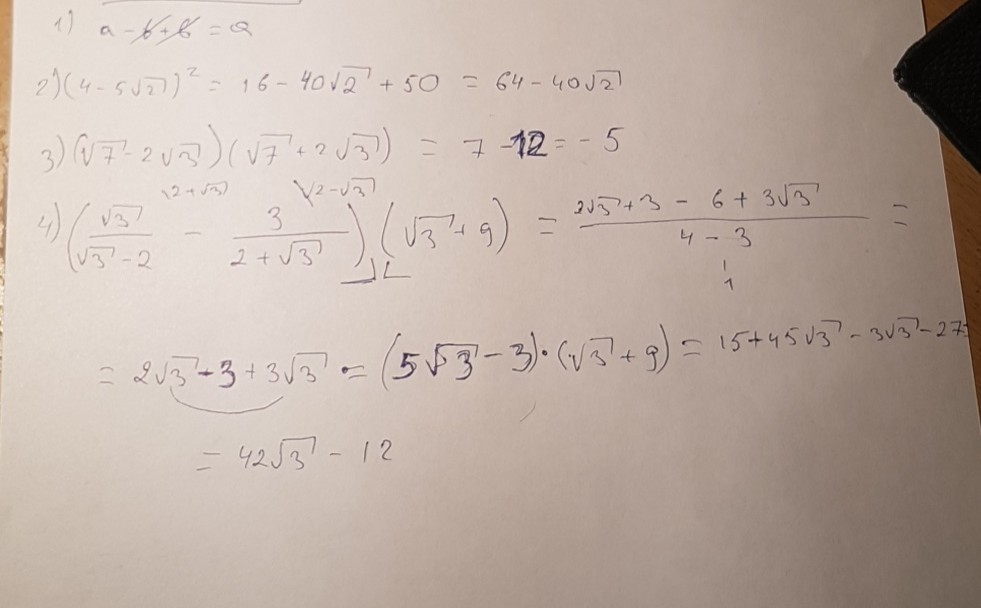 1) a - b + b = a
2) (4 - 5√2)² = 16 - 40√2 + 50 = 64 - 40√2
3) (√7 - 2√3)(√7 + 2√3) = 7 - 12 = - 5
\2+√3) \(2-√3)
4) (√3/(√3 - 2) - 3/(2 + √3)) (√3 + 9) = (2√3 + 3 - 6 + 3√3)/(4 - 3) =
1
= 2√3 - 3 + 3√3 = (5√3 - 3) · (√3 + 9) = 15 + 45√3 - 3√3 - 27 =
= 42√3 - 12